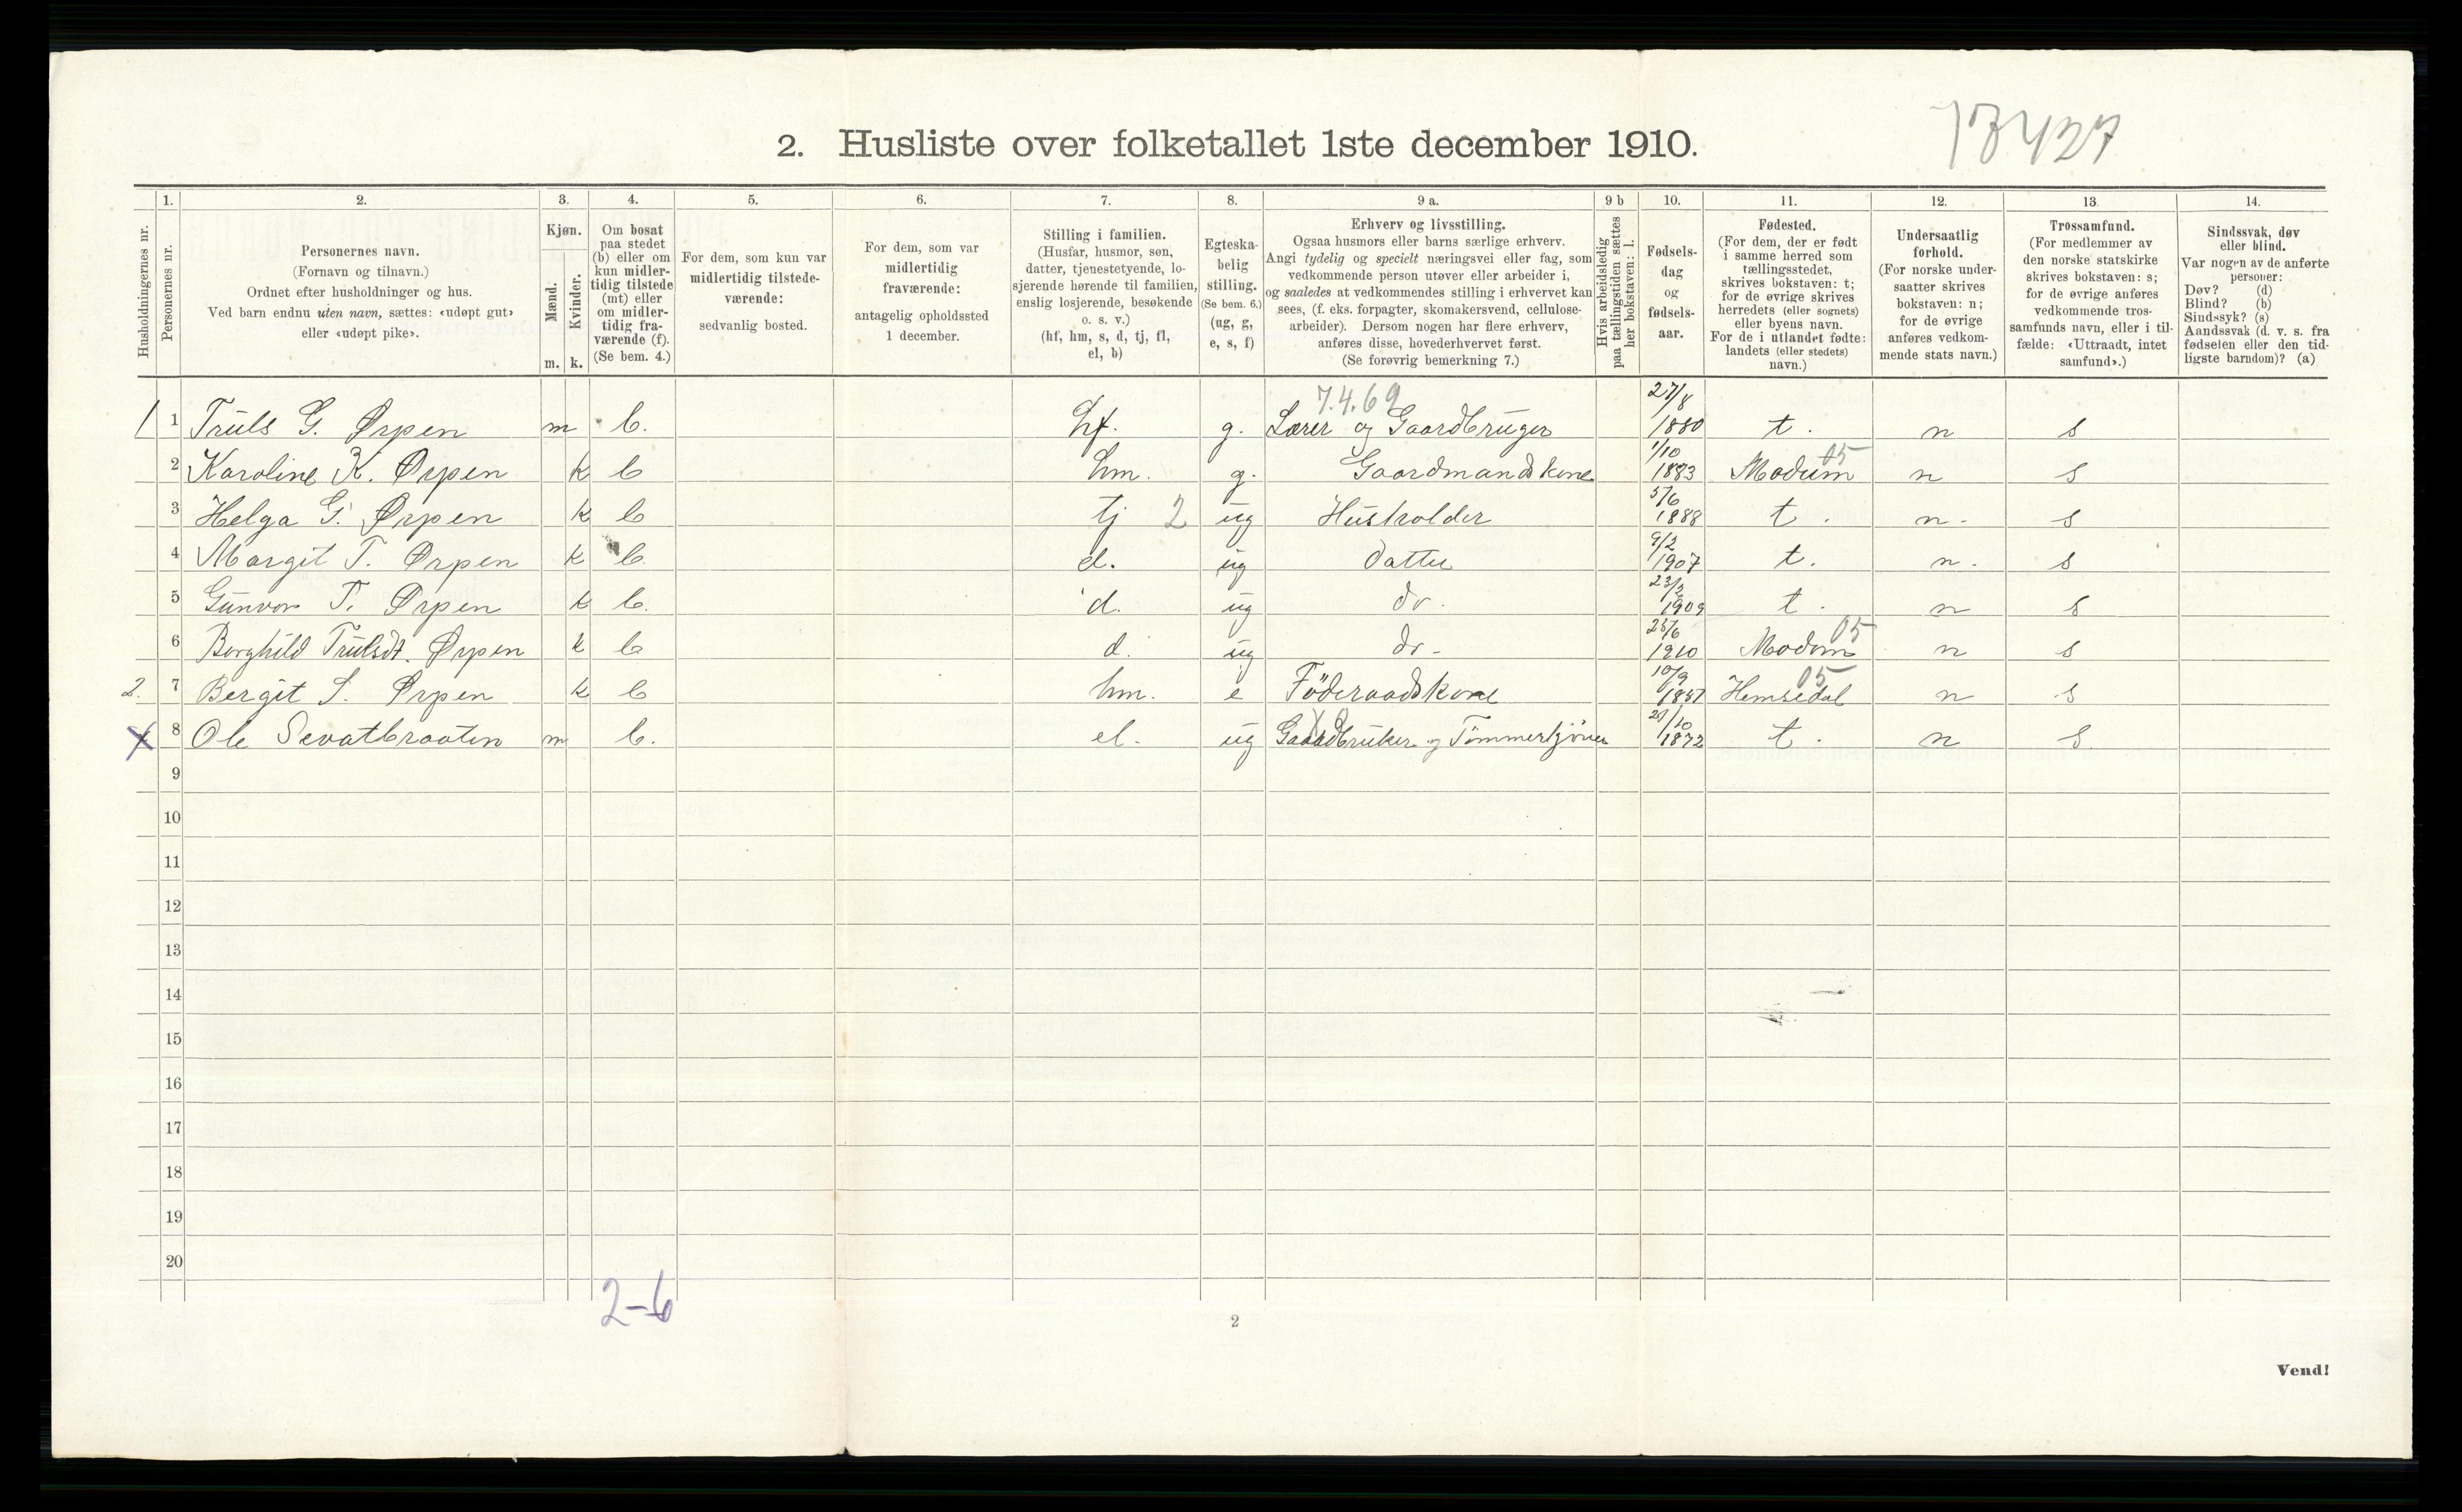 13427
2. Husliste over folketallet 1ste december 1910.
Husholdningernes nr.
1. Personernes nr.
2. Personernes navn.
(Fornavn og tilnavn.)
Ordnet efter husholdninger og hus.
Ved barn endnu uten navn, sættes: «udøpt gut»
eller «udøpt pike».
3. Kjøn.
Mænd. m.
Kvinder. k.
4. Om bosat
paa stedet
(b) eller om
kun midler-
tidig tilstede
(mt) eller
om midler-
tidig fra-
værende (f).
(Se bem. 4.)
5. For dem, som kun var
midlertidig tilstede-
værende:
sedvanlig bosted.
6. For dem, som var
midlertidig
fraværende:
antagelig opholdssted
1 december.
7. Stilling i familien.
(Husfar, husmor, søn,
datter, tjenestetyende, lo-
sjerende hørende til familien,
enslig losjerende, besøkende
o. s. v.)
(hf, hm, s, d, tj, fl,
el, b)
8. Egteska-
belig
stilling.
(Se bem. 6.)
(ug, g,
e, s, f)
9 a. Erhverv og livsstilling.
Ogsaa husmors eller barns særlige erhverv.
Angi tydelig og specielt næringsvei eller fag, som
vedkommende person utøver eller arbeider i,
og saaledes at vedkommendes stilling i erhvervet kan
sees, (f. eks. forpagter, skomakersvend, cellulose-
arbeider). Dersom nogen har flere erhverv,
anføres disse, hovederhvervet først.
(Se forøvrig bemerkning 7.)
9 b Hvis arbeidsledig
paa tællingstiden sættes
her bokstaven: l.
10. Fødsels-
dag
og
fødsels-
aar.
11. Fødested.
(For dem, der er født
i samme herred som
tællingsstedet,
skrives bokstaven: t;
for de øvrige skrives
herredets (eller sognets)
eller byens navn.
For de i utlandet fødte:
landets (eller stedets)
navn.)
12. Undersaatlig
forhold.
(For norske under-
saatter skrives
bokstaven: n;
for de øvrige
anføres vedkom-
mende stats navn.)
13. Trossamfund.
(For medlemmer av
den norske statskirke
skrives bokstaven: s;
for de øvrige anføres
vedkommende tros-
samfunds navn, eller i til-
fælde: «Uttraadt, intet
samfund».)
14. Sindssvak, døv
eller blind.
Var nogen av de anførte
personer:
Døv? (d)
Blind? (b)
Sindssyk? (s)
Aandssvak (d. v. s. fra
fødselen eller den tid-
ligste barndom)? (a)
7.4.69
1 1 Truls G. Ørpen m b. hf. g. Lærer og Gaardbruger 27/8 1880 t. n s
2 Karoline K. Ørpen k b hm. g. Gaardmandskone 1/10 1883 Modum 05 n s
3 Helga G. Ørpen k b tj 2 ug Husholder 5/6 1888 t. n. s
4 Margit T. Ørpen k b. d. ug datter 9/2 1907 t. n. s
5 Gunvor T. Ørpen k b. d. ug do. 23/2 1909 t. n s
6 Borghild Trulsdt. Ørpen k b d. ug do - 28/6 1910 Modum 05 n s
2. 7 Bergit S. Ørpen k b hm. e Föderaadskone 10/9 1851 Hemsedal 05 n s
8 Ole Sevatbraaten m b. el. ug Gaardbruker og Tömmerkjörer 1872 t. n s
9
10
11
12
13
14
15
16
17
18
19
20
2-6
2
Vend!